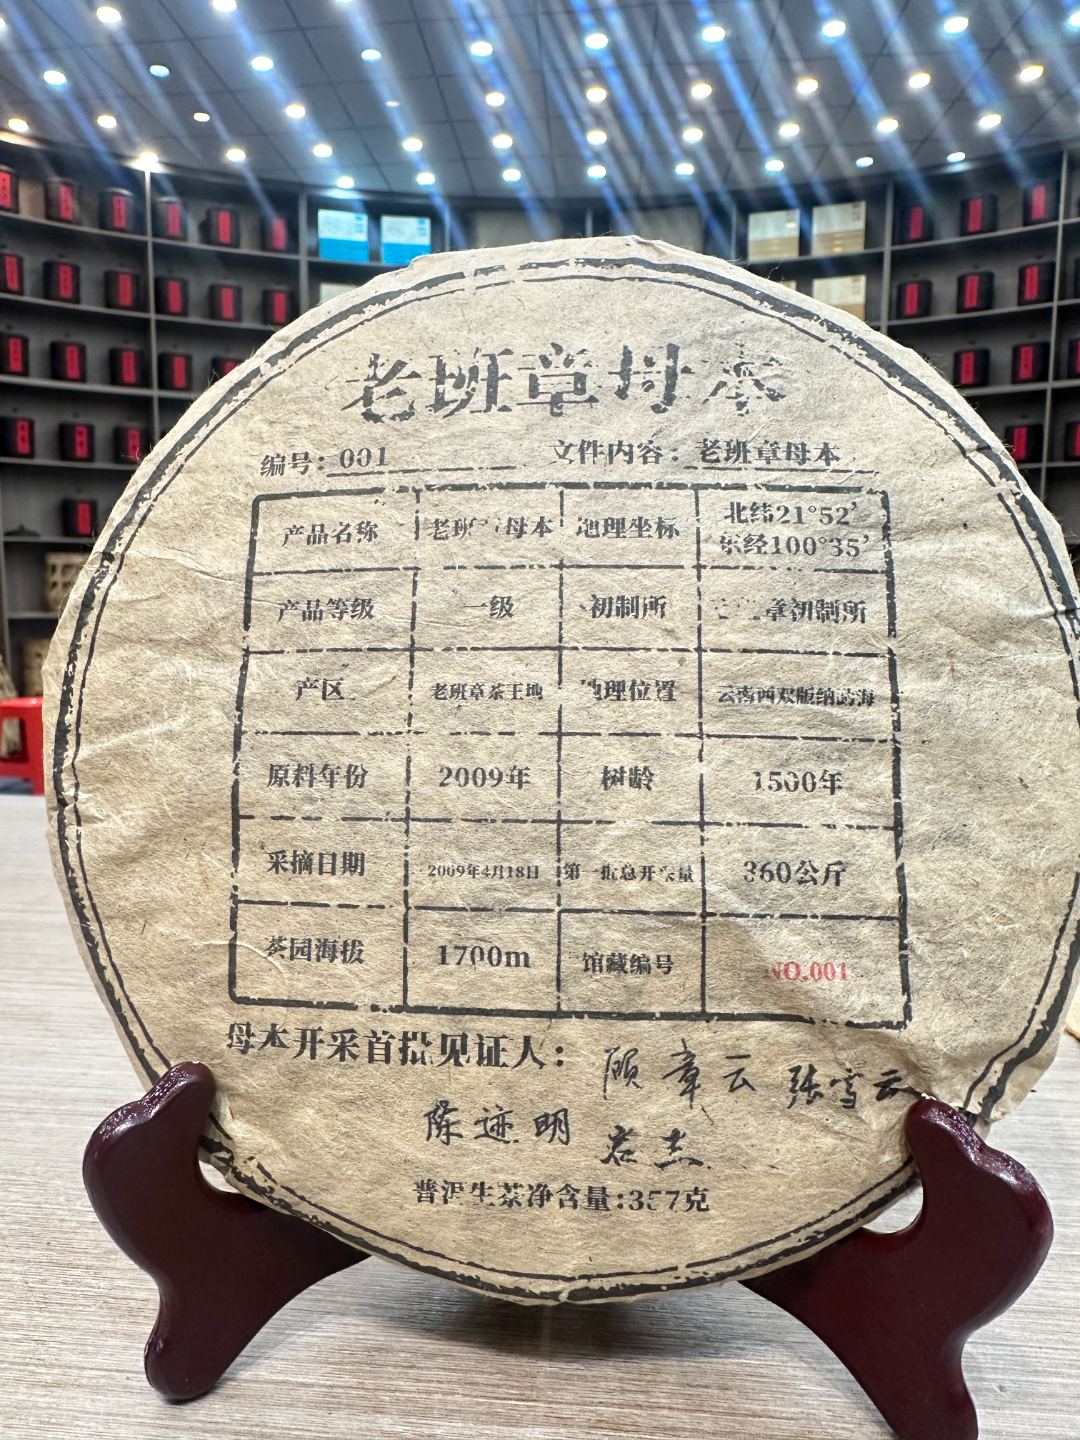 老班章母本
编号：001 文件内容：老班章母本
产品名称 老班章母本 地理坐标 北纬21°52′
东经100°35′
产品等级 一级 初制所 章初制所
产区 老班章茶王地 地理位置 云南西双版纳勐海
原料年份 2009年 树龄 1500年
采摘日期 2009年4月18日 第一批总开采量 360公斤
茶园海拔 1700m 馆藏编号 NO.001
母本开采首批见证人：顾章云 张雪云
陈迹明
普洱生茶净含量：357克